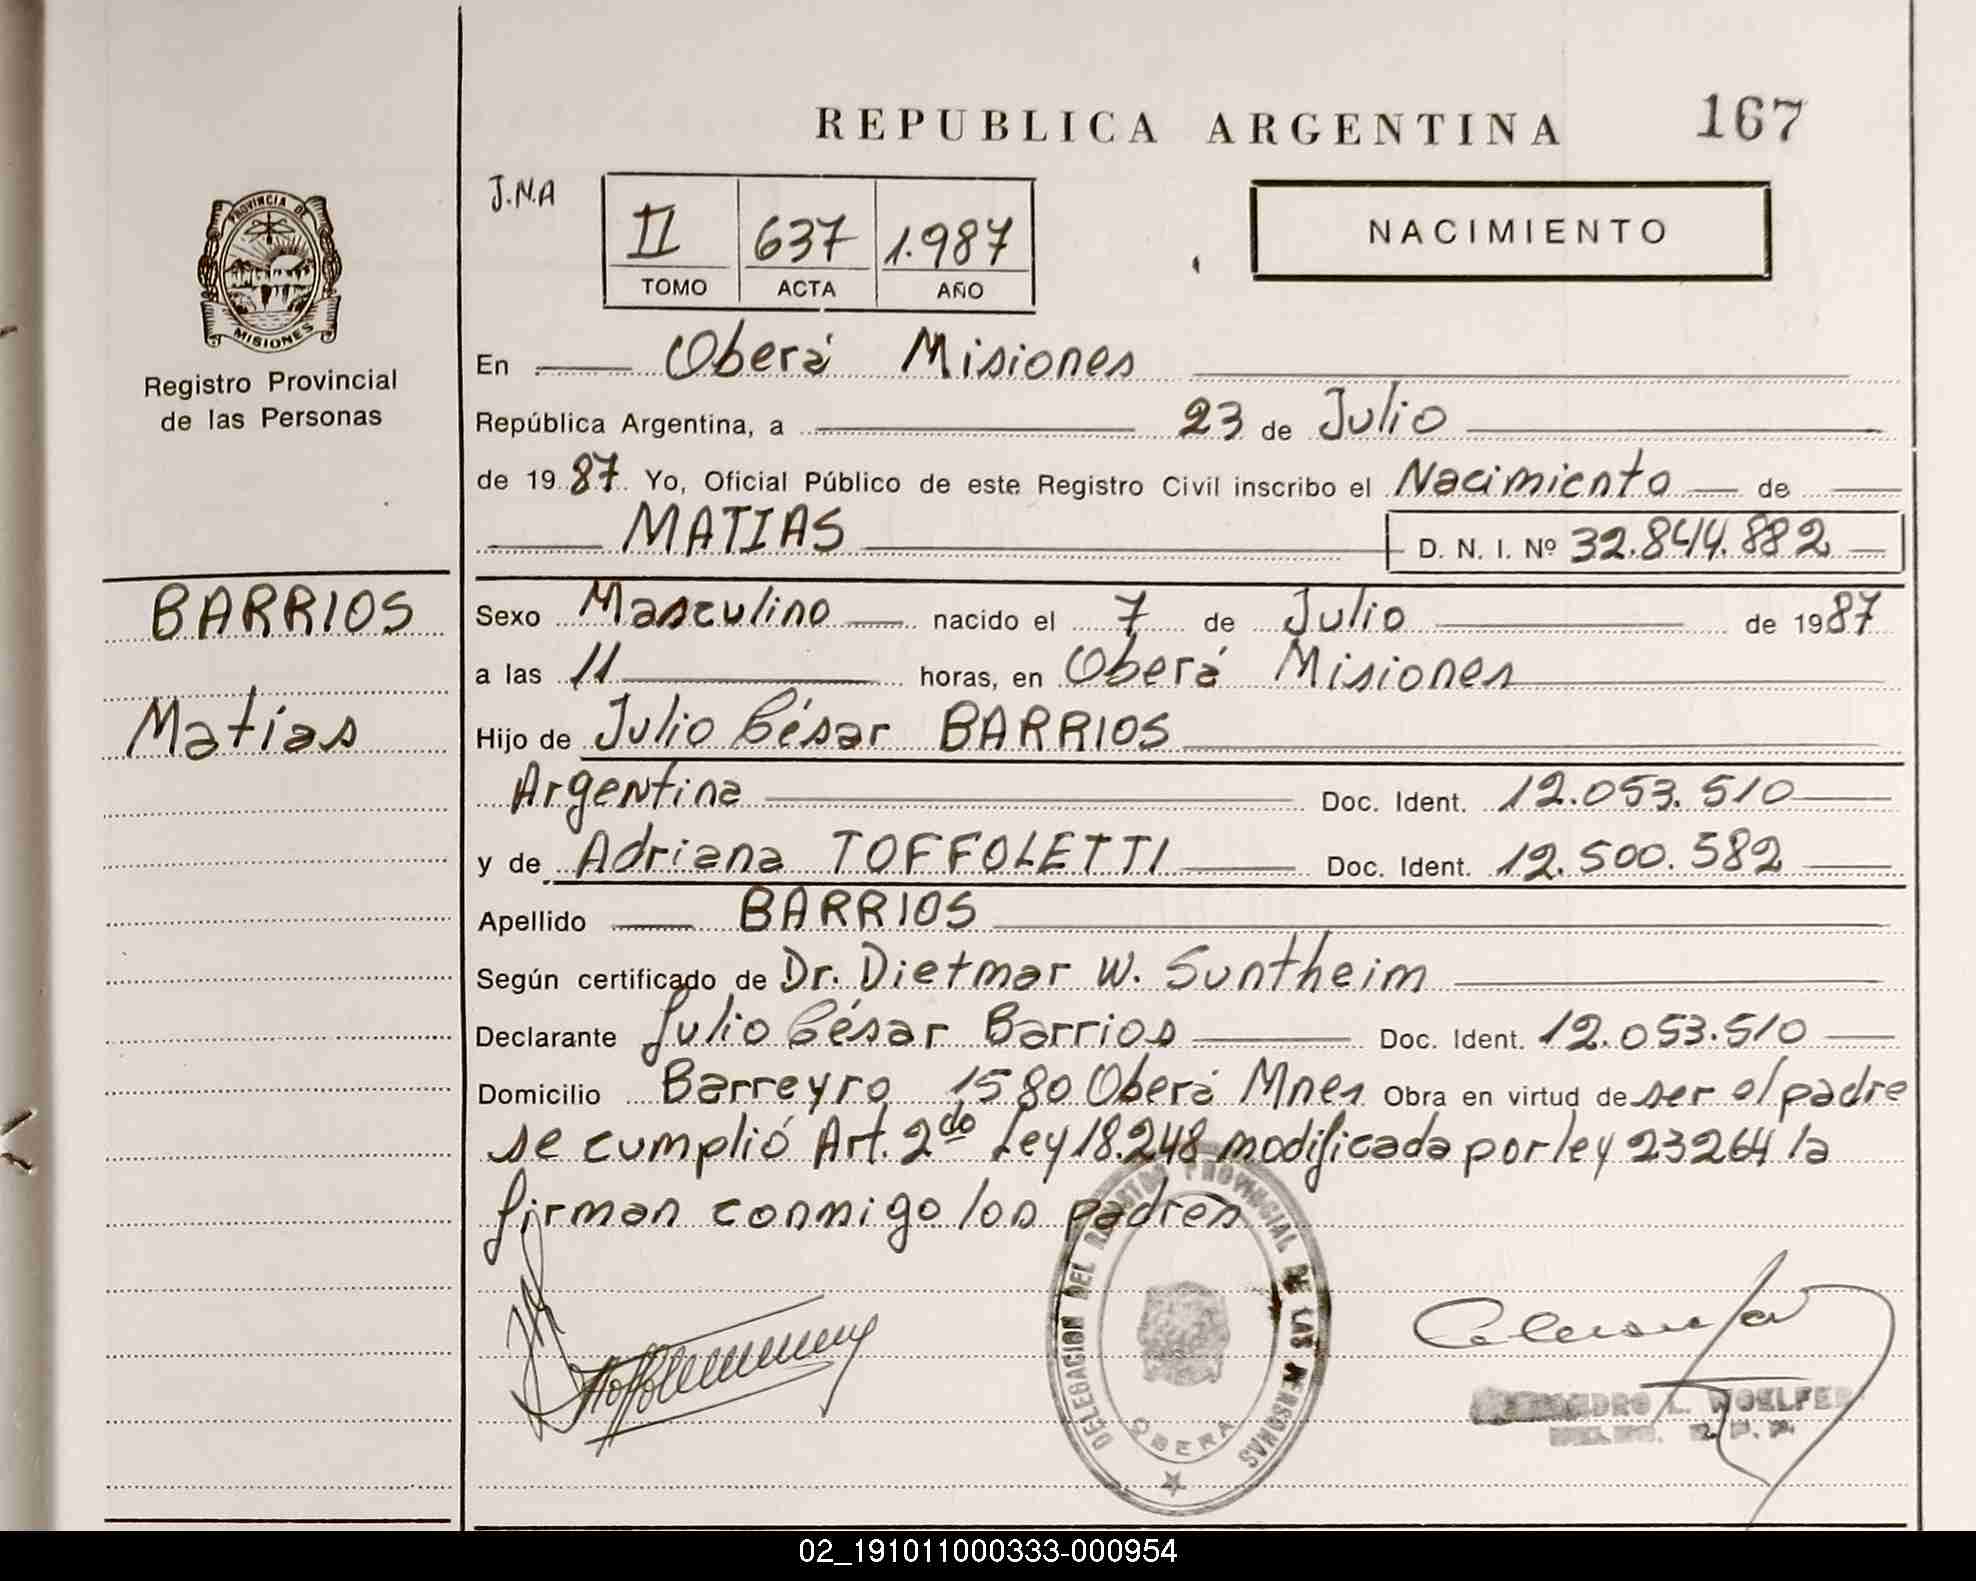 REPUBLICA ARGENTINA 167
PROVINCIA DE
MISIONES
Registro Provincial
de las Personas
J.N.A
II 637 1.987
TOMO ACTA AÑO
NACIMIENTO
En Oberá Misiones
República Argentina, a 23 de Julio
de 1987 Yo, Oficial Público de este Registro Civil inscribo el Nacimiento de
MATIAS D. N. I. Nº 32.844.882
BARRIOS
Matías
Sexo Masculino nacido el 7 de Julio de 1987
a las 11 horas, en Oberá Misiones
Hijo de Julio César BARRIOS
Argentina Doc. Ident. 12.053.510
y de Adriana TOFFOLETTI Doc. Ident. 12.500.582
Apellido BARRIOS
Según certificado de Dr. Dietmar W. Suntheim
Declarante Julio César Barrios Doc. Ident. 12.053.510
Domicilio Barreyro 1580 Oberá Mnes Obra en virtud de ser el padre
se cumplió Art. 2do Ley 18.248 modificada por ley 23264 la
firman conmigo los padres
DELEGACION DEL PROVINCIAL DE LAS PERSONAS
OBERA
L. WOELFER
02_191011000333-000954